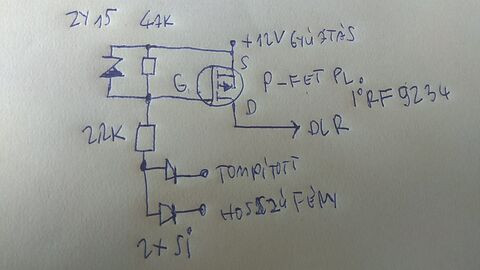 ZY15 47K
+12V GYÚJTÁS
S
G
P-FET PL.
IRF9234
D
22K
DLR
TOMPÍTOTT
HOSSZÚFÉNY
2x Si